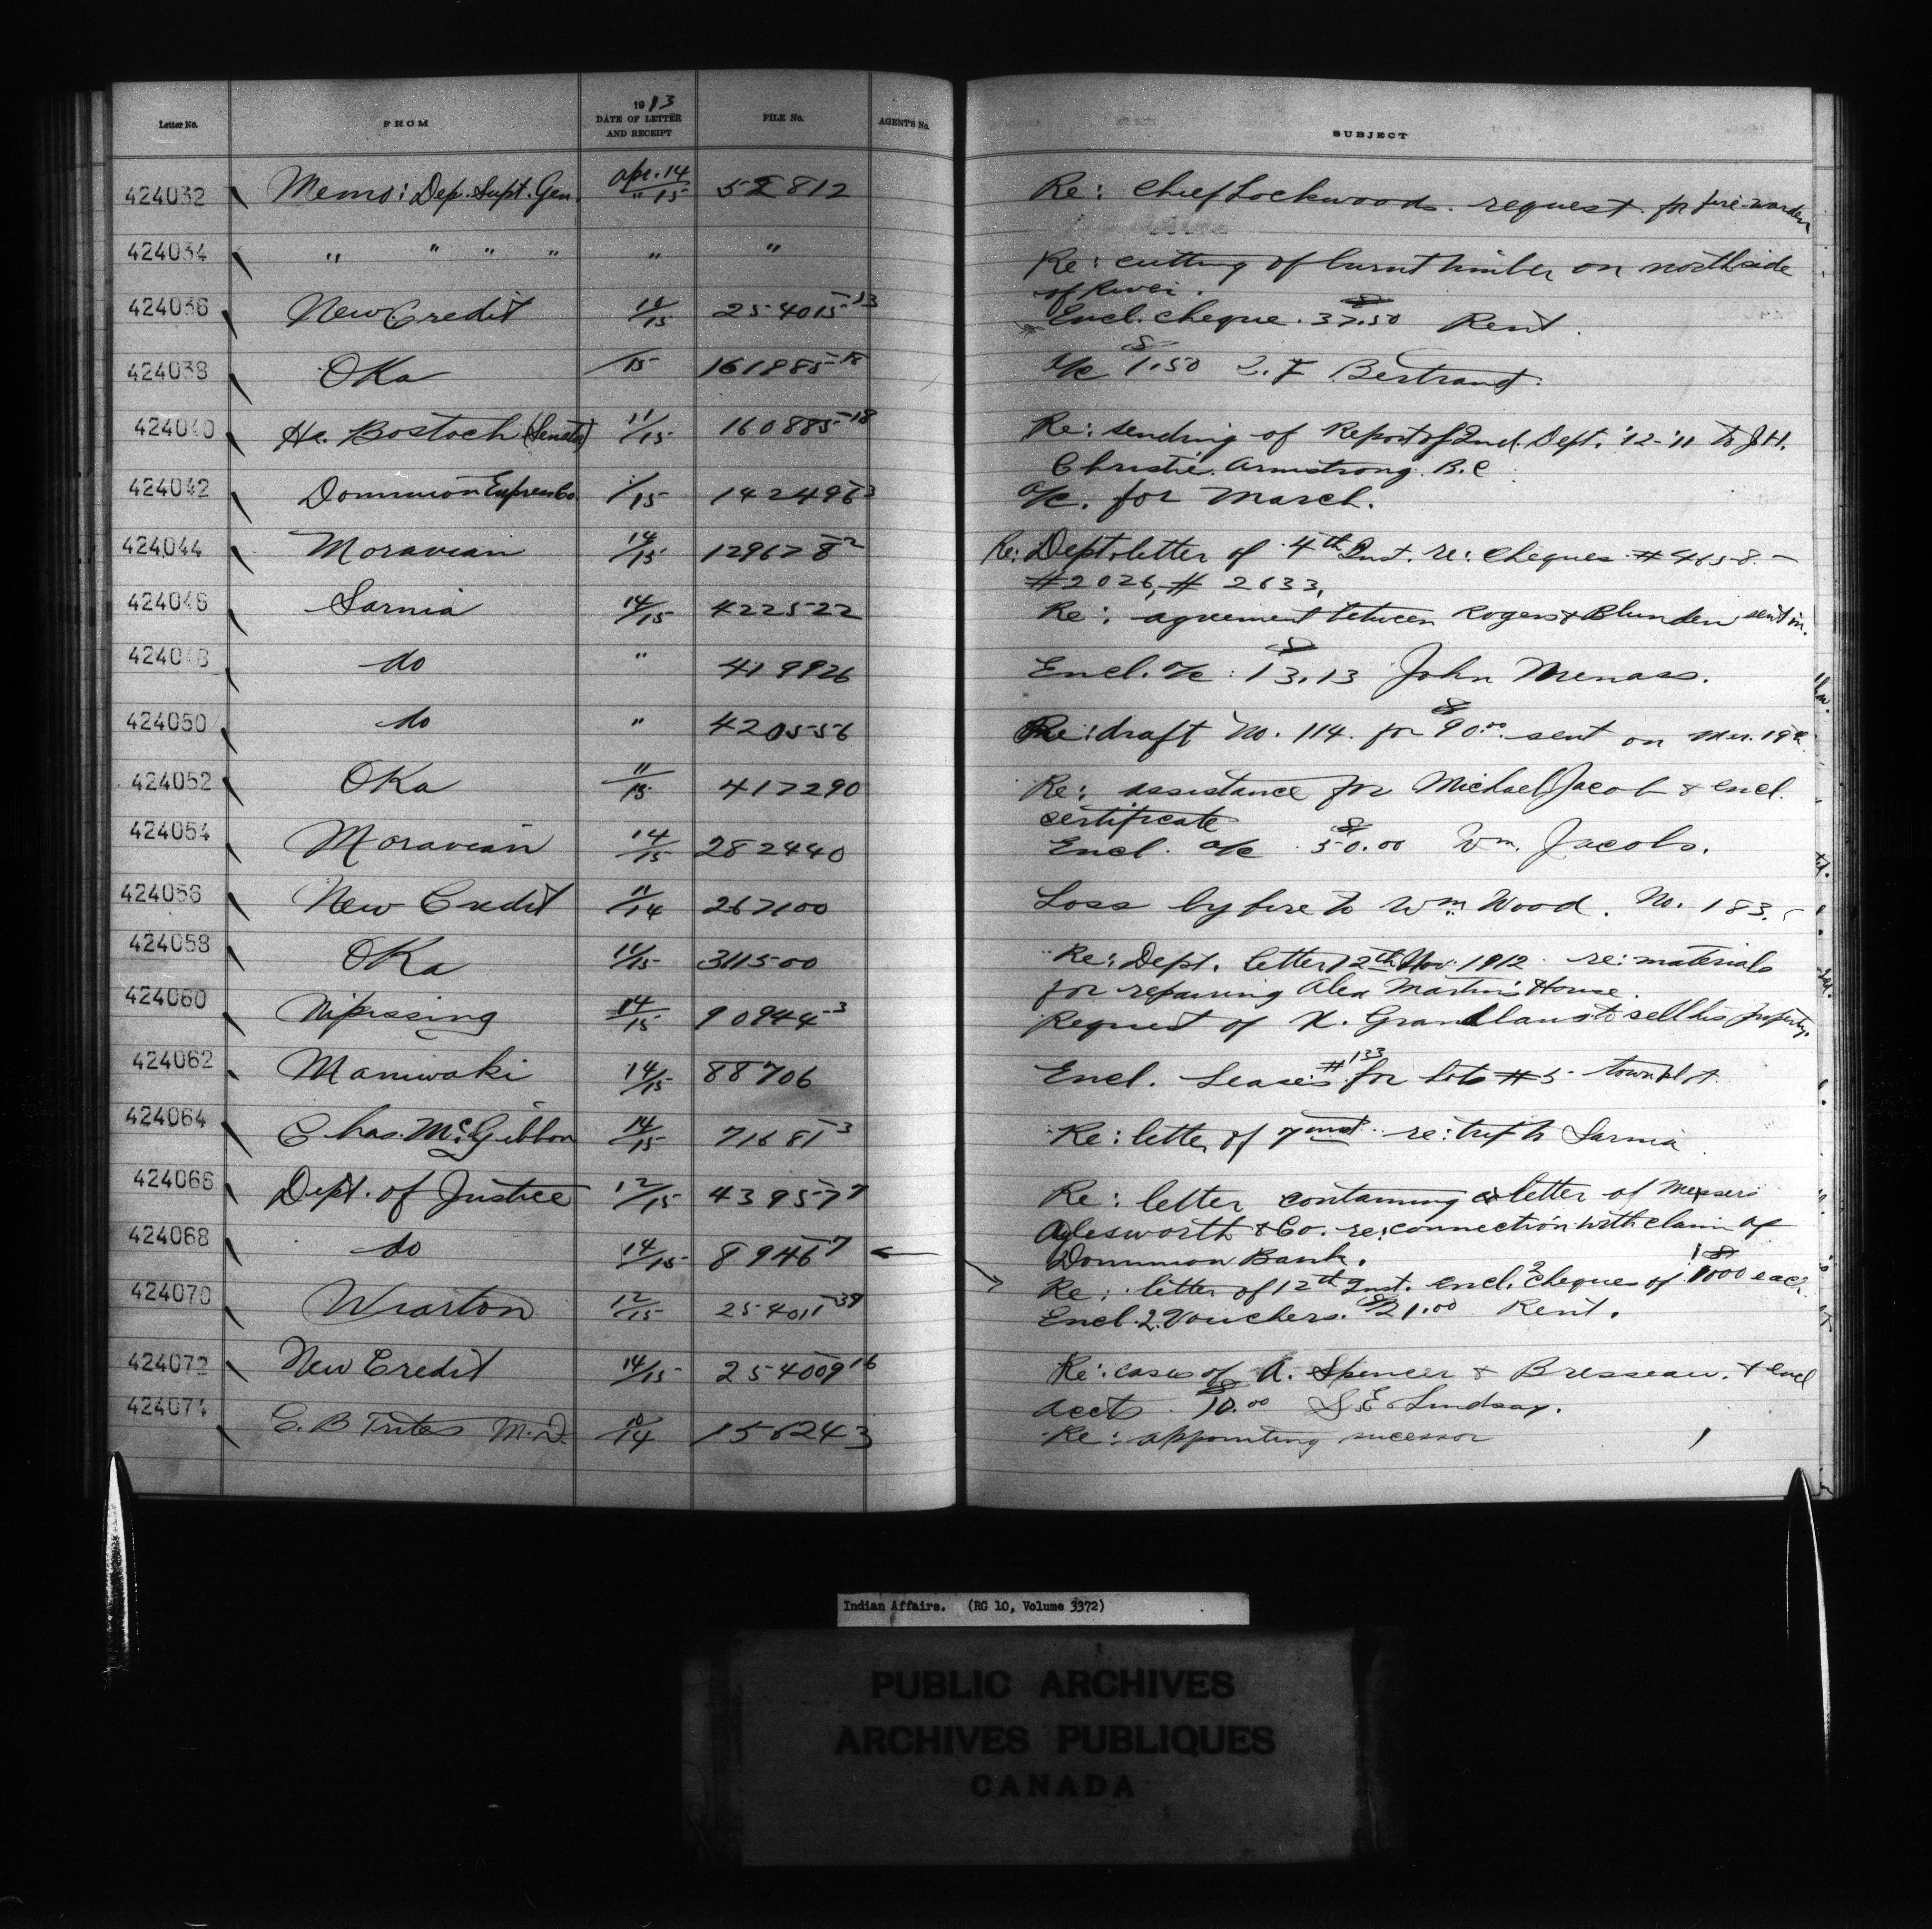 Letter No. FROM 1913 DATE OF LETTER AND RECEIPT FILE No. AGENT'S No. SUBJECT
424032 Memo: Dep. Supt. Gen. Apr. 14/" 15 52812 Re: Chief Lockwoods. request for fire-warden
424034 " " " " " " Re: cutting of burnt timber on north side
of River.
424036 New Credit 14/15 254015-13 Encl. cheque. $37.50 Rent.
424038 Oka /15 161985-18 a/c $1.50 Bertrand.
424040 He. Bostock (Senator) 11/15 160885-18 Re: sending of Report of Ind. Dept. '12-'11 to J.H.
Christie. Armstrong. B.C
424042 Dominion Express Co. /15 142496-3 a/c. for March.
424044 Moravian 14/15 129678-2 Re: Dept. letter of 4th Inst. re: cheques #4658.-
#2026, #2633,
424046 Sarnia 14/15 422522 Re: agreement between Rogers & Blunden sent in.
424048 do " 419926 Encl. a/c: $13.13 John Menass.
424050 do " 420556 Re: draft No. 114. for $90.00 sent on Mar. 19th
424052 Oka 11/15 417290 Re: assistance for Michael Jacob & encl.
certificate
424054 Moravian 14/15 282440 Encl. a/c $50.00 Wm. Jacobs.
424056 New Credit 11/14 267100 Loss by fire to Wm. Wood. No. 183.
424058 Oka 11/15 311500 Re: Dept. letter 12th Nov. 1912 re: materials
for repairing Alex Martin's House.
424060 Nipissing 14/15 90944-3 Request of X. Grandlouis to sell his property.
424062 Maniwaki 14/15 88706 Encl. Leases #133 for lots #5 town plot
424064 Chas. McGibbon 14/15 71681-3 Re: letter of 7 inst. re: trip to Sarnia
424066 Dept. of Justice 12/15 43957-7 Re: letter containing letter of Messers
Aylesworth & Co. re: connection with claim of
Dominion Bank.
424068 do 14/15 8946-7 Re: letter of 12th Inst. encl. 2 cheques of $1000 each
424070 Wiarton 12/15 254011-39 Encl. 2 Vouchers. $21.00 Rent.
424072 New Credit 14/15 254009-16 Re: cases of A. Spencer & Bresseau. & encl
accts $10.00 S.E. Lindsay.
424074 E. B Trites M.D. 10/14 156243 Re: appointing sucessor
Indian Affairs. (RG 10, Volume 3372)
PUBLIC ARCHIVES
ARCHIVES PUBLIQUES
CANADA